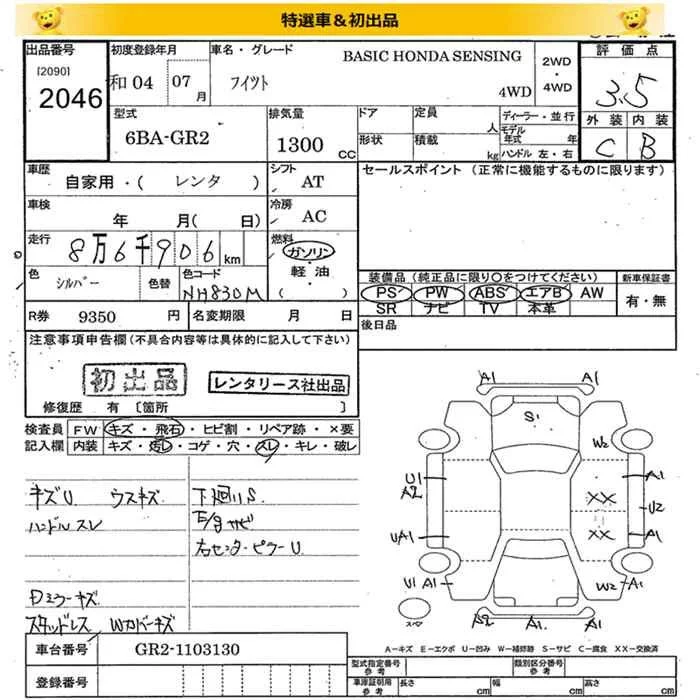 特選車&初出品
出品番号
[2090]
2046
初度登録年月
和04 07 月
車名・グレード
BASIC HONDA SENSING
フィット
4WD
2WD
・
4WD
評価点
3.5
外装 内装
C B
型式
6BA-GR2
排気量
1300 CC
ドア
定員 人
形状
積載 kg
ディーラー・並行
モデル年式 年
ハンドル 左・右
車歴
自家用・( レンタ )
シフト
AT
セールスポイント (正常に機能するものに限ります)
車検
年 月( 日)
冷房
AC
走行
8万6千906 km
燃料
ガソリン
・
軽油
( )
色
シルバー
色替
色コード
NH830M
装備品(純正品に限り○をつけてください)
PS PW ABS エアB AW
SR ナビ TV 本革
新車保証書
有・無
R券 9350 円
名変期限 月 日
後日品
注意事項申告欄(不具合内容等は具体的に記入して下さい)
初出品
レンタリース社出品
修復歴 有 [箇所 ]
検査員
記入欄
FW キズ・飛石・ヒビ割・リペア跡・×要
内装 キズ・汚レ・コゲ・穴・スレ・キレ・破レ
キズU ウスキズ
下廻りS
ハンドルスレ
E/gサビ
右センターピラーU
Dミラーキズ
スタッドレス Wカバーキズ
A1 A1
S1
W2
U1
A2
A1
XX
U2
UA1
XX
A1
U1 A1
W2 A1
スペ
A2 A1 A1
A-キズ E-エクボ U-凹み W-補修跡 S-サビ C-腐食 XX-交換済
車台番号
GR2-1103130
登録番号
型式指定番号
参考
類別区分番号
参考
車庫証明用
参考
長さ cm
幅 cm
高さ cm